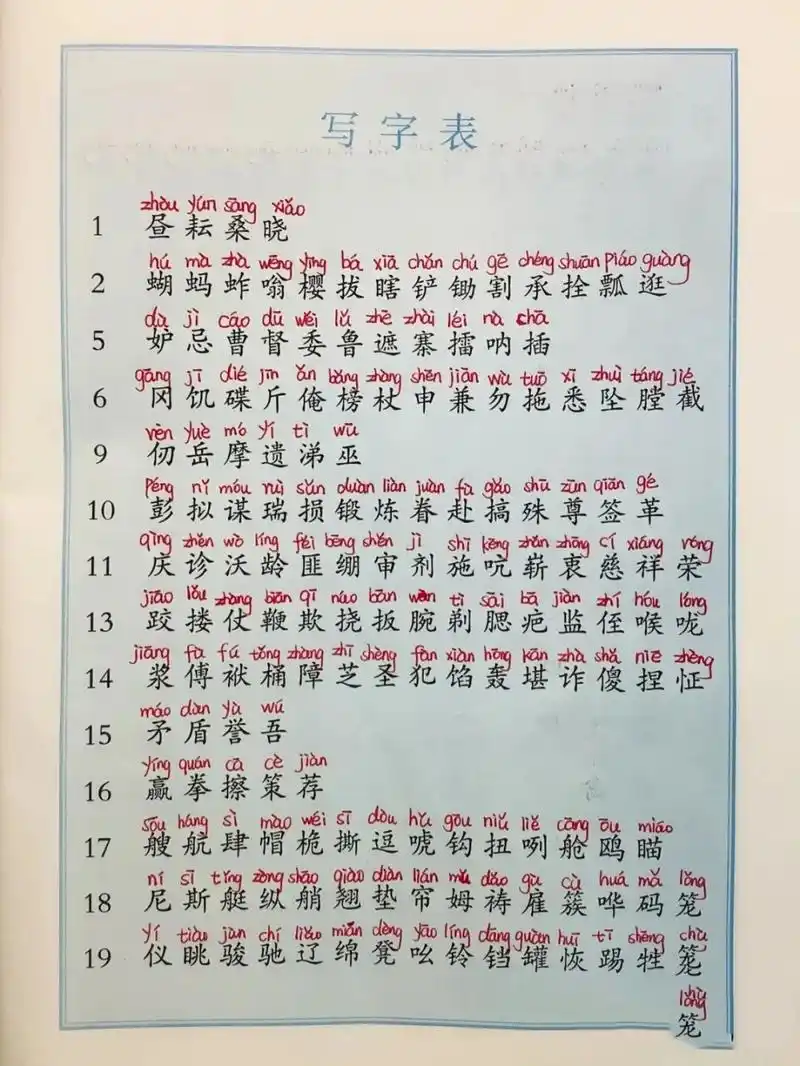 写字表
zhòu yún sāng xiǎo
1 昼耘桑晓
hú mà zhà wēng yīng bá xiā chǎn chú gē chéng shuān piáo guàng
2 蝴蚂蚱嗡樱拔瞎铲锄割承拴瓢逛
dù jì cáo dū wěi lǔ zhē zhài léi nà chā
5 妒忌曹督委鲁遮寨擂呐插
gāng jī dié jīn ǎn bǎng zhàng shēn jiān wù tuō xī zhuì táng jié
6 冈饥碟斤俺榜杖申兼勿拖悉坠膛截
rèn yuè mó yí tì wū
9 仞岳摩遗涕巫
péng nǐ móu ruì sǔn duàn liàn juàn fù gǎo shū zūn qiān gé
10 彭拟谋瑞损锻炼眷赴搞殊尊签革
qìng zhěn wò líng fěi bēng shěn jì shī kēng zhǎn zhōng cí xiáng róng
11 庆诊沃龄匪绷审剂施吭崭衷慈祥荣
jiāo lǒu zhàng biān qī náo bān wàn tì sāi bā jiàn zhí hóu lóng
13 跤搂仗鞭欺挠扳腕剃腮疤监侄喉咙
jiāng fù fú tǒng zhàng zhī shèng fàn xiàn hōng kān zhà shǎ niē zhèng
14 浆傅袱桶障芝圣犯馅轰堪诈傻捏怔
máo dùn yù wú
15 矛盾誉吾
yíng quán cā cè jiàn
16 赢拳擦策荐
sōu háng sì mào wéi sī dòu hǔ gōu niǔ liě cāng ōu miáo
17 艘航肆帽桅撕逗唬钩扭咧舱鸥瞄
ní sī tǐng zòng shāo qiào diàn lián mǔ dǎo gù cù huá mǎ lǒng
18 尼斯艇纵艄翘垫帘姆祷雇簇哗码笼
yí tiào jùn chí liáo mián dèng yāo líng dāng guàn huī tī shēng
19 仪眺骏驰辽绵凳吆铃铛罐恢踢牲笼
lǒng
笼